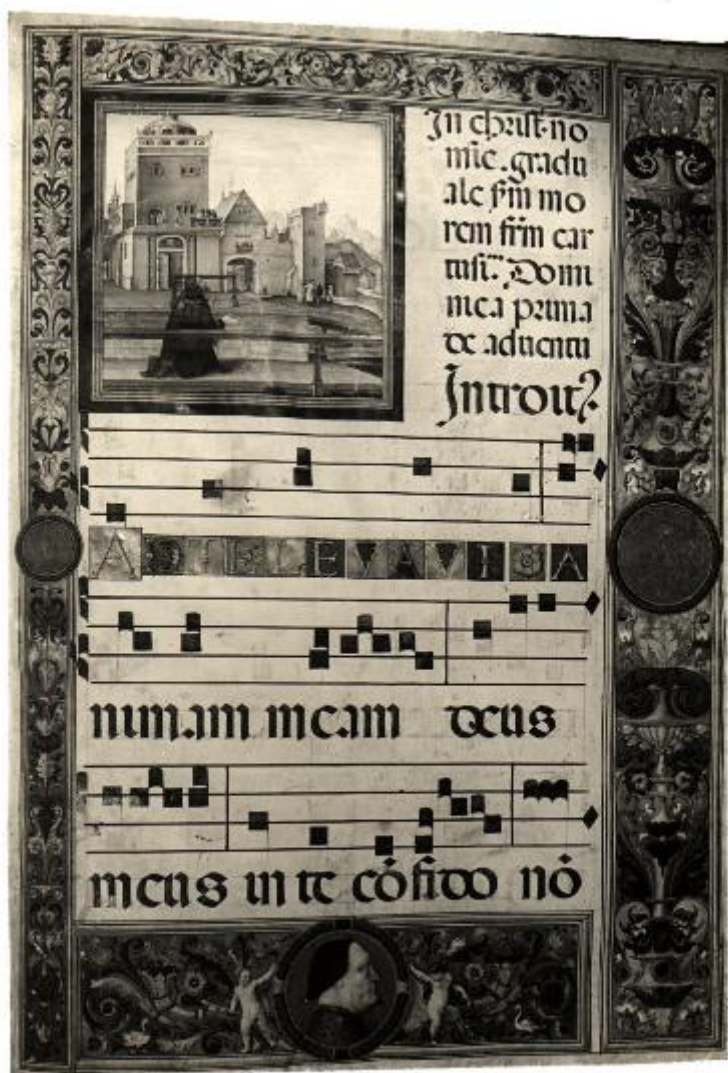 In christ. no
mīe. gradu
ale s̄m mo
rem fr̄m car
tusi. Domi
nica prima
de aduentu
Introit?
AD TE LEVAVI A
nimam meam deus
meus in te cōfido nō